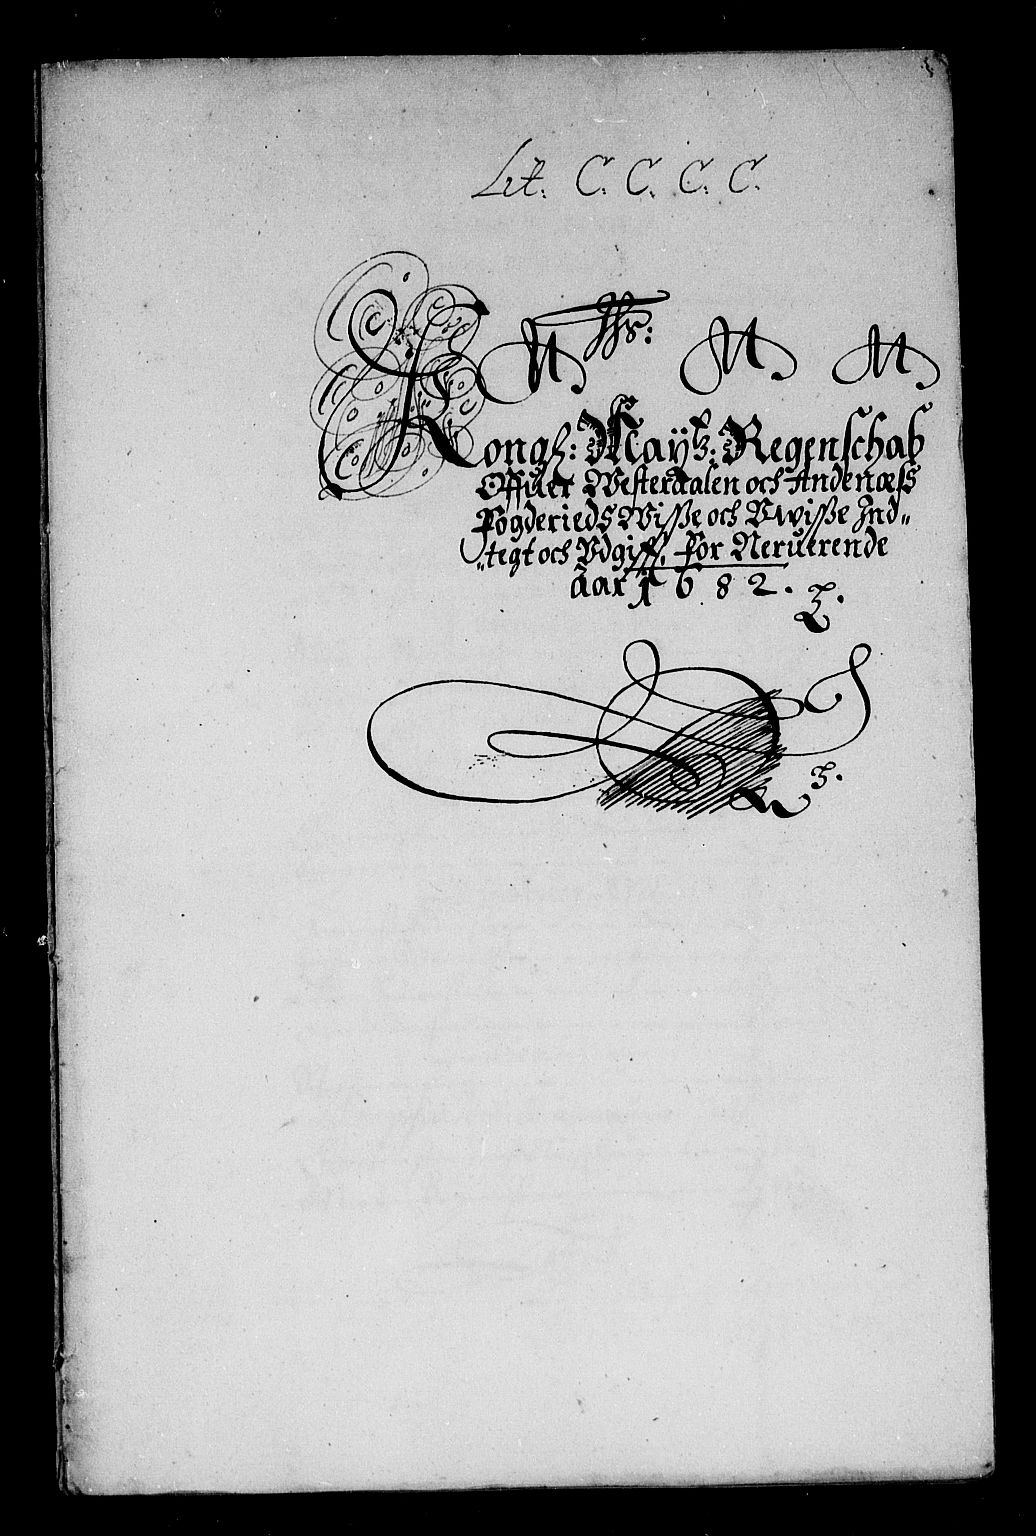 Lit. C. C. C. C.
Hr:
N. N. N.
Kongl: Mayttz: Regenschab
Offuer Westerdalen och Andenæss
Fogderieds Wisse och Vwisse Ind„
„tegt och Vdgifft, For Neruerende
Aar 1682.